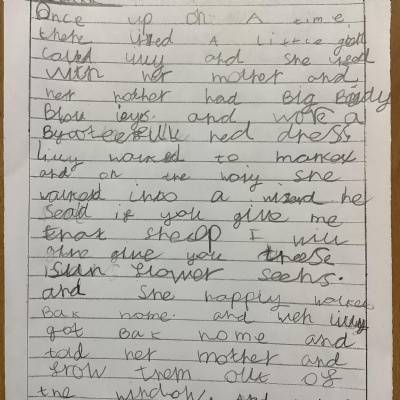 Once up on A time,
there lived A little goll
Called Lilly and she lived
With her mother and
her mother had Big
Blow ieys. and wore a
red dress
Lilly walked to market
and on the way she
walked into a wizard he
Sead if you give me
that sheep I will
give you theese
sun flower seehs.
and she happly
Bak home. and weh Lilly
got Bak home and
told her mother and
frow them out of
the window. and